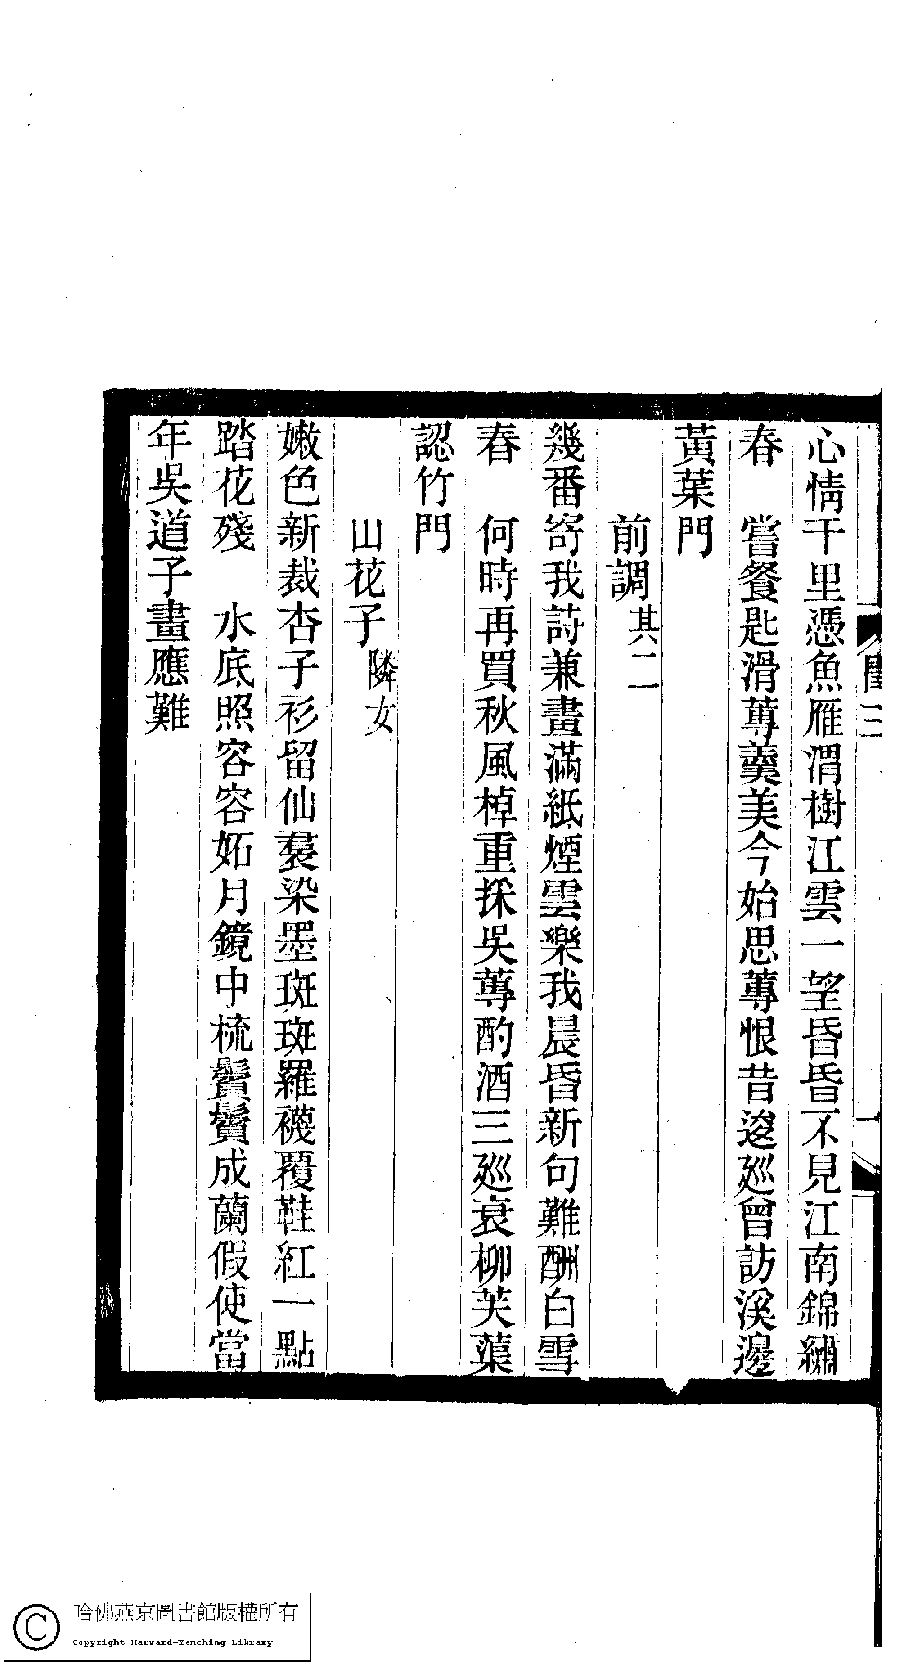 心情千里憑魚雁渭樹江雲一望昏昏不見江南錦繡
春　嘗餐匙滑蓴羹美今始思蓴恨昔逡廵曾訪溪邊
黃葉門
前調其二
幾番寄我詩兼畫滿紙煙雲樂我晨昏新句難酬白雪
春　何時再買秋風棹重採吳蓴酌酒三廵衰柳芙蕖
認竹門
山花子隣女
嫩色新裁杏子衫留仙裠染墨斑斑羅襪覆鞋紅一點
踏花殘　水底照容容妬月鏡中梳鬢鬢成蘭假使當
年吳道子畫應難
哈佛燕京圖書館版權所有
Copyright Harvard-Yenching Library